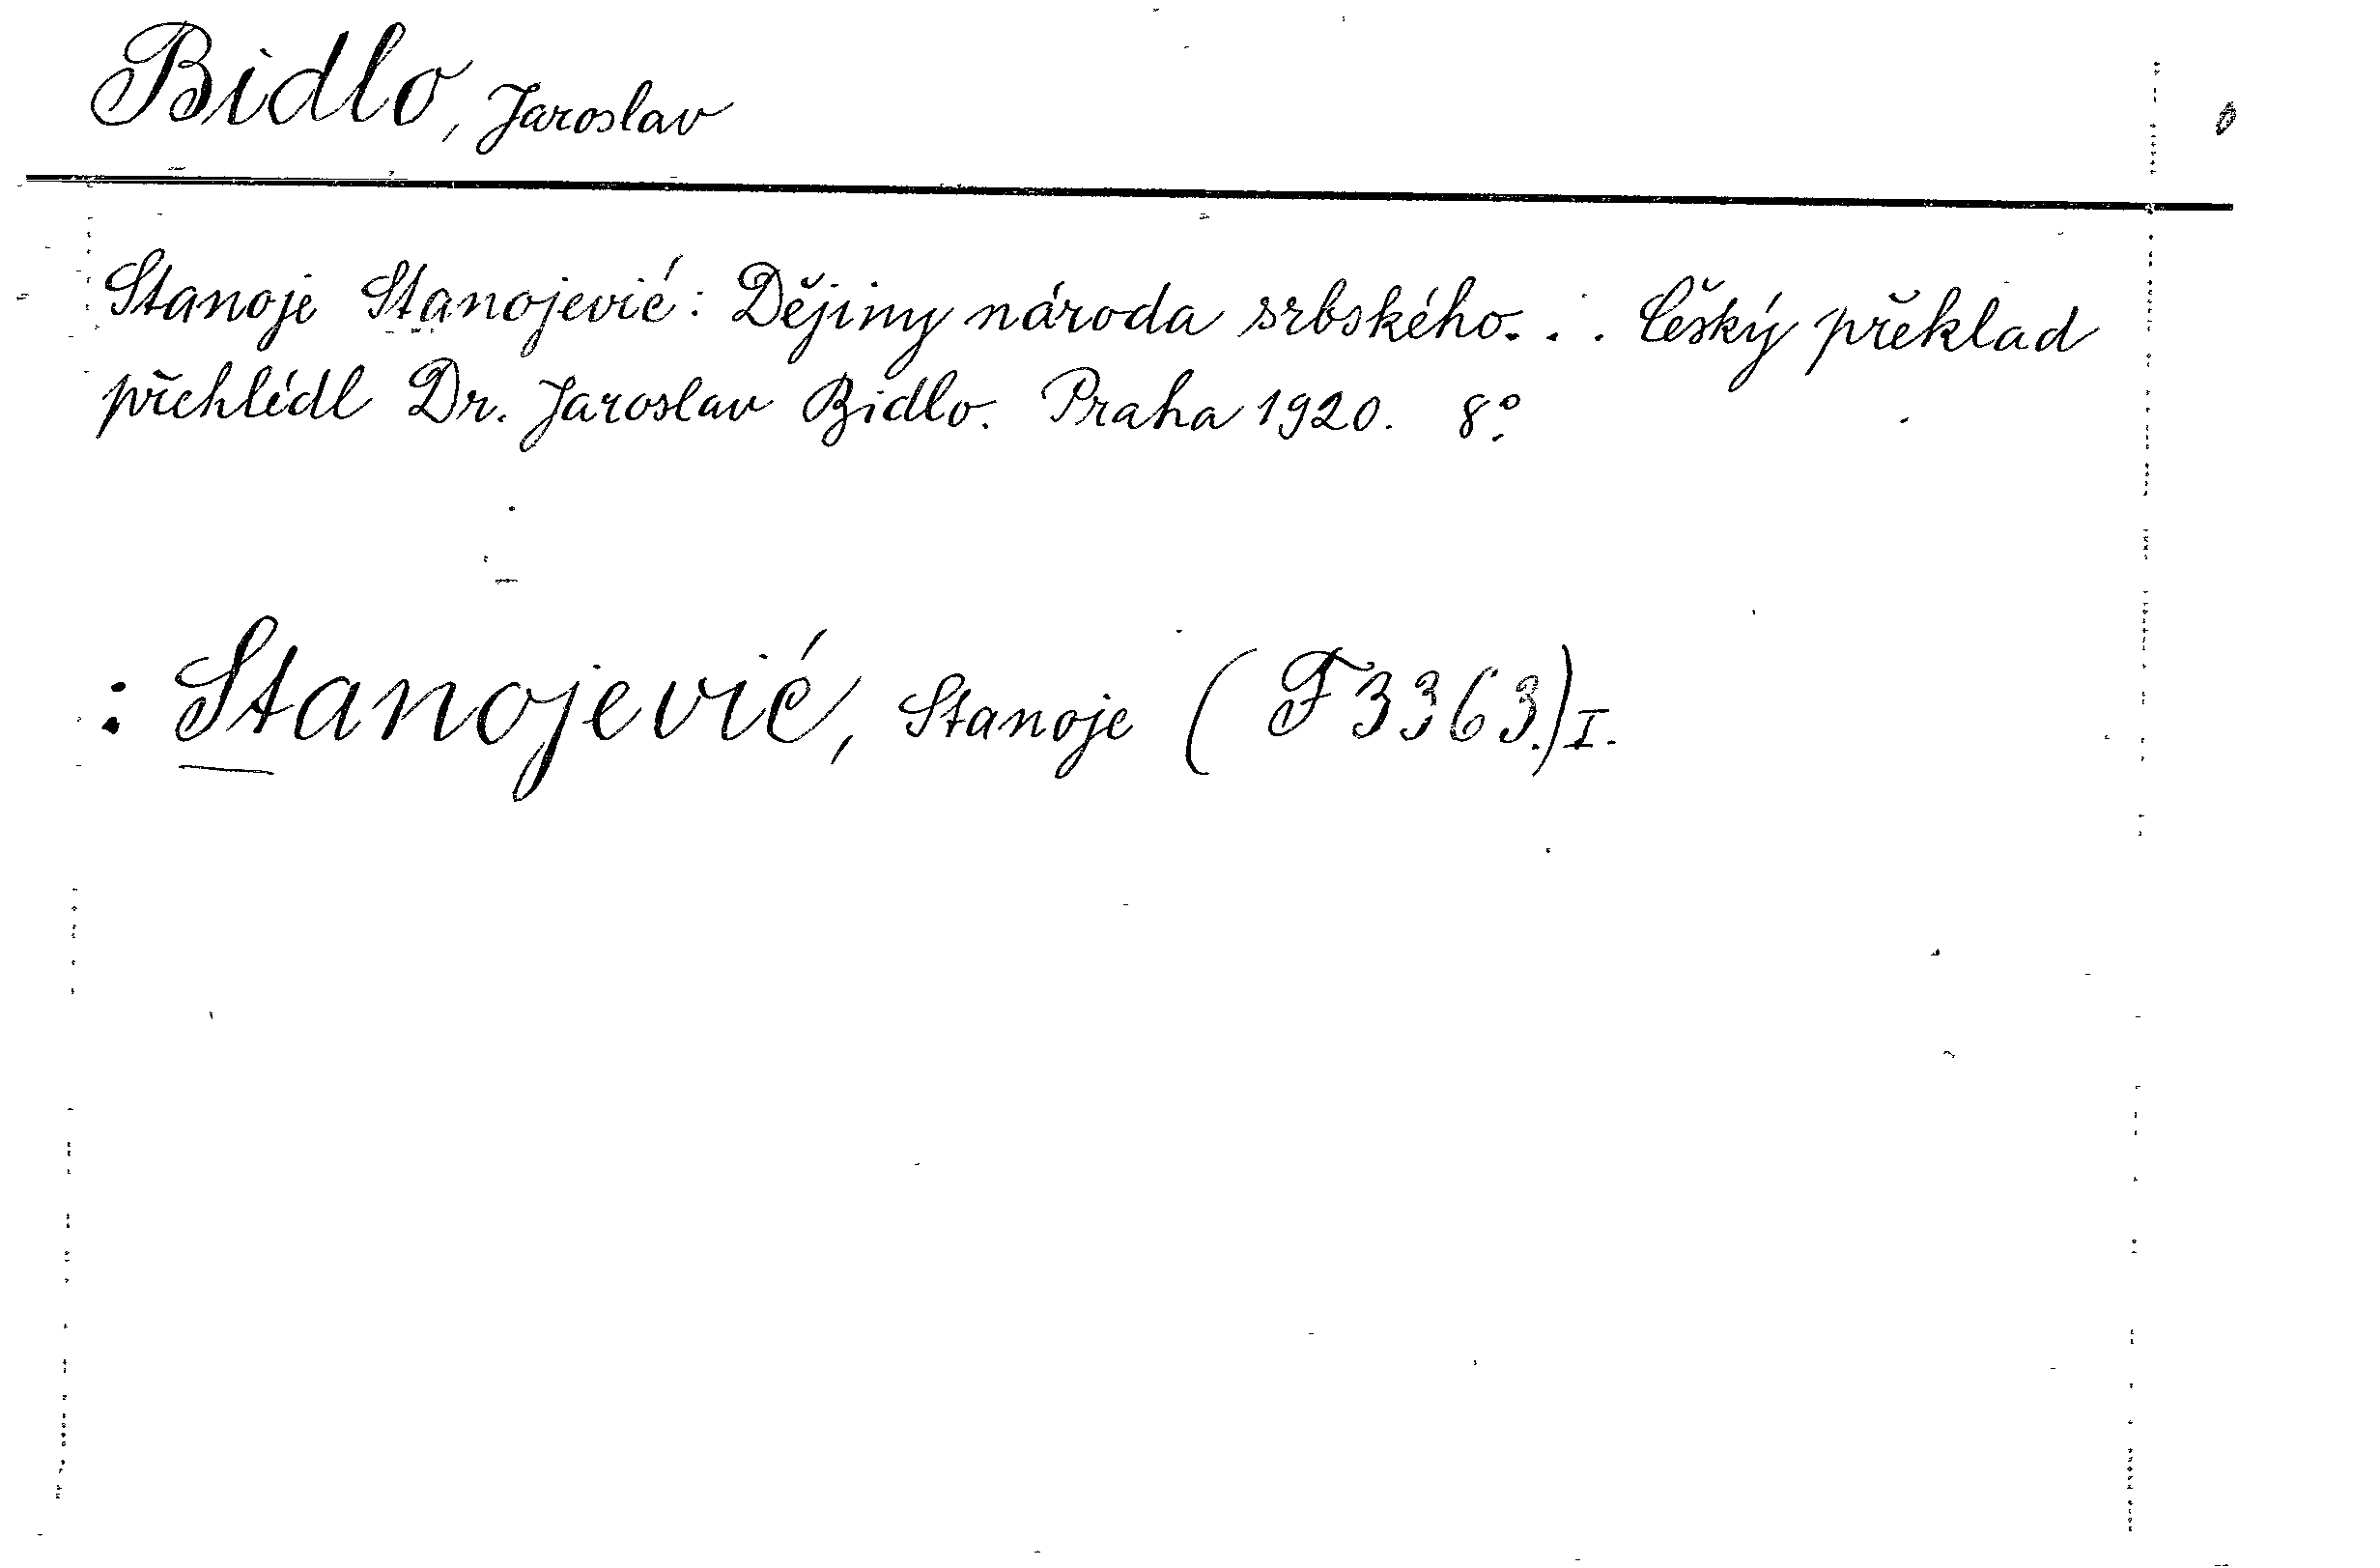 Bidlo, Jaroslav
Stanoje Stanojević: Dějiny národa srbského... Český překlad
přehlédl Dr. Jaroslav Bidlo. Praha 1920. 8°.
: Stanojević, Stanoje (F 3363.) I.